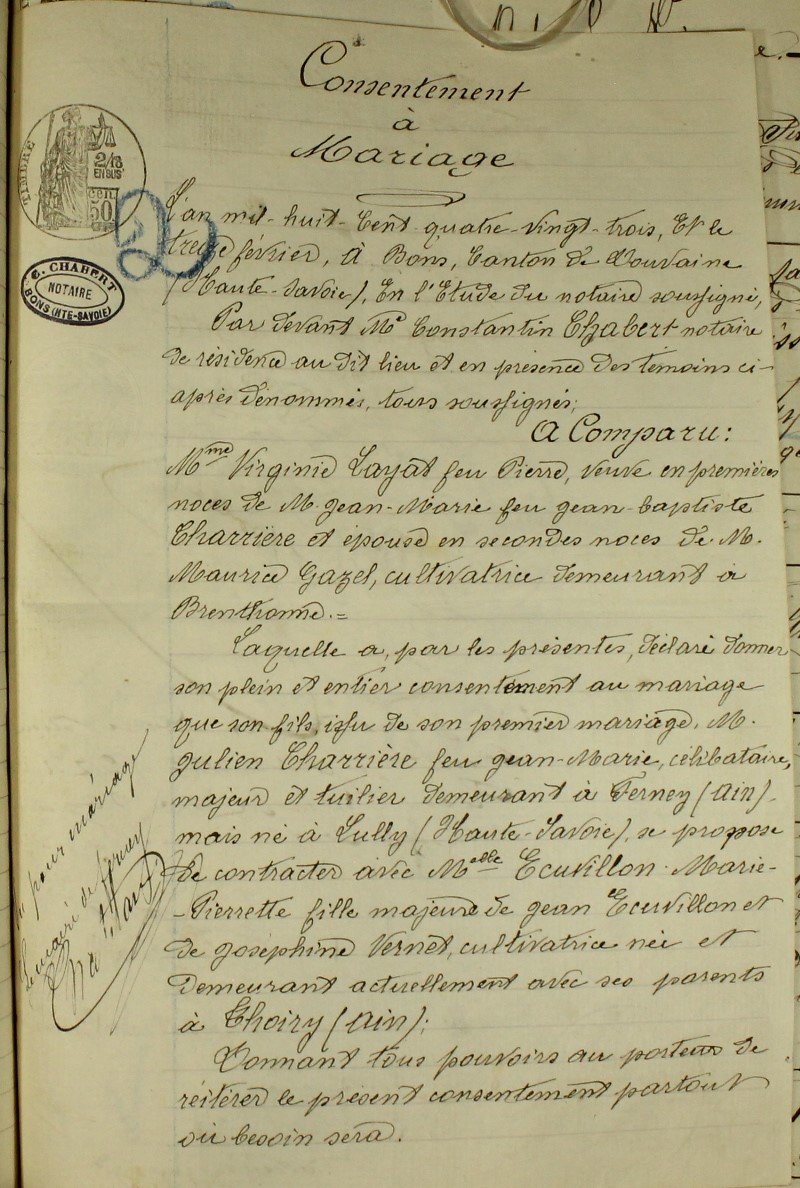 Consentement
à
Mariage
TIMBRE
2/10
EN SUS
CENT.
50
C. CHABERT
NOTAIRE
BONS (HTE-SAVOIE)
L'an mil-huit-Cent quatre-vingt-trois, Et le
treize février, A Bons, Canton de Douvaine
(Haute-Savoie), En l'Etude du notaire soussigné,
Par devant Me Constantin Chabert notaire
de résidence au dit lieu et en présence des témoins ci-
après dénommés, tous soussignés;
A Comparu:
Mme Virginie Layat feu Pierre, veuve en premières
noces de M. Jean-Marie feu Jean-baptiste
Charrière et épouse en secondes noces de M.
Maurice Gazel, cultivatrice demeurant à
Brenthonne.=
Laquelle a, par les présentes, déclaré donner
son plein et entier consentement au mariage
que son fils, issu de son premier mariage, M.
Julien Charrière feu Jean-Marie, célibataire,
majeur et tuilier demeurant à Ferney (Ain),
mais né à Lully (Haute-Savoie), se propose
de contracter avec Melle Ecuvillon Marie-
-Pierrette fille majeure de Jean Ecuvillon et
de Joséphine Vernet, cultivatrice née et
demeurant actuellement avec ses parents
à Thoiry (Ain);
Donnant tous pouvoirs au porteur de
réitérer le présent consentement partout
où besoin sera.
Vu pour mariage
Le maire de Ferney